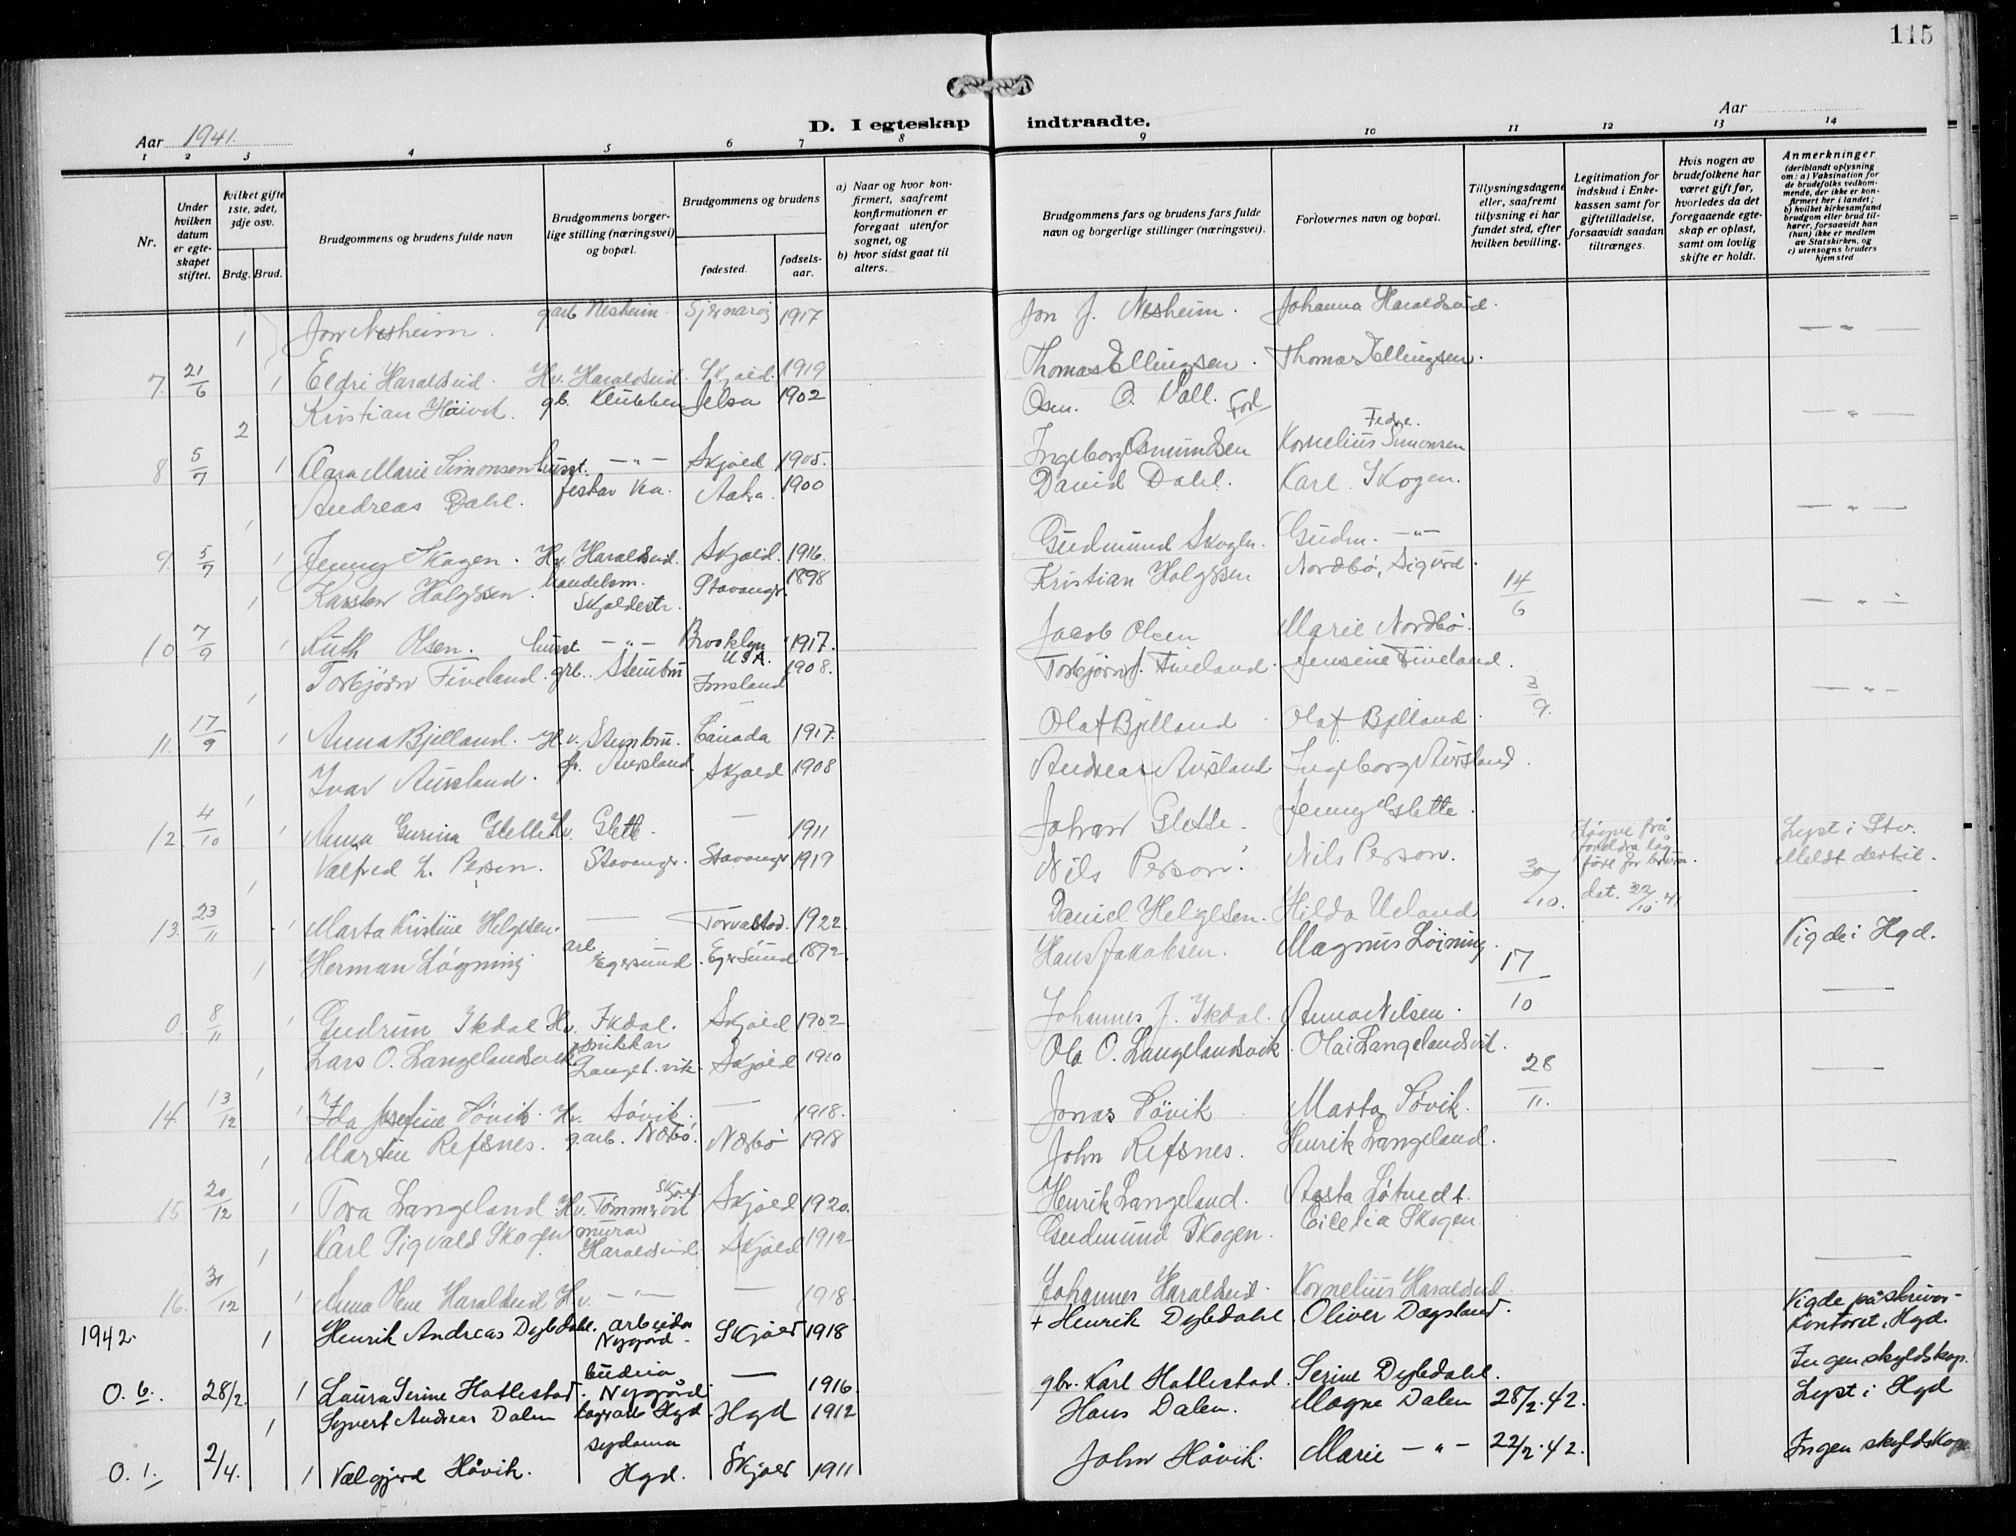 115
Aar 1941.
D. I egteskap indtraadte.
Aar
1 2 3 4 5 6 7 8 9 10 11 12 13 14
Nr.
Under hvilken datum er egteskapet stiftet.
hvilket gifte 1ste, 2det, 3dje osv.
Brdg. Brud.
Brudgommens og brudens fulde navn
Brudgommens borgerlige stilling (næringsvei) og bopæl.
Brudgommens og brudens
fødested. fødselsaar.
a) Naar og hvor konfirmert, saafremt konfirmationen er foregaat utenfor sognet, og
b) hvor sidst gaat til alters.
Brudgommens fars og brudens fars fulde navn og borgerlige stillinger (næringsvei).
Forlovernes navn og bopæl.
Tillysningsdagene eller, saafremt tillysning ei har fundet sted, efter hvilken bevilling.
Legitimation for indskud i Enkekassen samt for giftetilladelse, forsaavidt saadan tiltrænges.
Hvis nogen av brudefolkene har været gift før, hvorledes da det foregaaende egteskap er opløst, samt om lovlig skifte er holdt.
Anmerkninger (deriblandt oplysning om: a) Vaksination for de brudefolks vedkommende, der ikke er konfirmert her i landet; b) hvilket kirkesamfund brudgom eller brud tilhører, forsaavidt han (hun) ikke er medlem av Statskirken, og c) utensogns bruders hjemsted
1 Jon Nesheim. garb Nesheim 1917 Jon J. Nesheim. Johanna Haraldseid. — " —
7. 21/6 1 Eldri Haraldseid. Hv. Haraldseid. Skjold. 1919 Thomas Ellingsen. Thomas Ellingsen.
2 Kristian Høivik. gb. Klubben Jelsa 1902 Osm. O. Vall. — " —
8 5/7 1 Clara Marie Simonsen husst. — " — Skjold 1905. Ingeborg Osmundsen Kornelius Simonsen
1 Andreas Dahl. 1900 David Dahl. Karl Skogen. — " —
9. 5/7 1 Jenny Skogen. Hv. Haraldseid. Skjold. 1916. Gudmund Skogen. Gudm. — " —
1 Karsten Holgersen. handelsm. Skjoldestr. Stavanger. 1898 Kristian Holgersen Nordbø, Sigurd. 14/6 — " —
10 7/9 1 Ruth Olsen. husst — " — Brooklyn U.S.A. 1917. Jacob Olsen Marie Nordbø.
1 Torbjørn Fiveland. grb. Stembru Imsland 1908. Torbjørn J. Fiveland Jensine Fiveland. 3/9. — " —
11. 17/9 1 Anna Bjelland. Hv. Stembru. Canada 1917. Olaf Bjelland Olaf Bjelland.
1 Ivar Aursland. Aursland. Skjold 1908 Andreas Aursland Ingeborg Aursland.
12. 4/10 1 Anna Gurina Glette Hv. Glette. — 1911 Johan Glette. Jenny Glette.
1 Valfred L. Person. Stavanger. Stavanger 1919 Nils Person. Nils Person. 30/10. det. 22/10. 41 Lyst i Stv. Meldt dertil.
13. 23/11 1 Marta Kristine Helgesen. — Torvastad. 1922 Daniel Helgesen. Hilda Ueland
1 Herman Løgning arb. Egersund Egersund 1892 Hans Jakobsen. Magnus Løining. 17/10 Vigde i Hgd.
0. 8/11 1 Gudrun Ikdal Hv. Ikdal. Skjold 1902 Johannes J. Ikdal. Anna Nilsen.
1 Lars O. Langelandsvik snikkar Langel.vik Skjold 1910 Ola O. Langelandsvik. Olai Langelandsvik. 28/11.
14. 13/12 1 Ida Josefine Søvik. Hv. Søvik. — 1918. Jonas Søvik Marta Søvik.
1 Martin Refsnes. garb. Nærbø. Nærbø 1918 John Refsnes. Henrik Langeland.
15 20/12 1 Tora Langeland Hv. Tømmervik Skjold. Skjold 1920. Henrik Langeland. Aasta Løtvedt.
1 Karl Sigvald Skogen murar Haraldseid. Skjold 1912 Gudmund Skogen. Cicelia Skogen.
16. 31/12 1 Anna Olene Haraldseid Hv. — " — — 1918. Johannes Haraldseid. Kornelius Haraldseid
1942. 1 Henrik Andreas Dybdahl. arbeidar Nygård Skjold 1918 + Henrik Dybdahl. Oliver Dagsland. Vigde på skrivarkontoret, Hgd.
O. 6. 28/2. 1 Laura Serine Hatlestad. budeia Nygård. — 1916. gbr. Karl Hatlestad. Serine Dybdahl. Ingen skyldskap.
1 Syvert Andreas Dalen Hgd. Hgd 1912 Hans Dalen. Magne Dalen 28/2.42. Lyst i Hgd
O. 1. 2/4. 1 Valgjerd Håvik. sydama Hgd. Skjold 1911 John Håvik. Marie — " — 22/2.42. Ingen skyldskap.